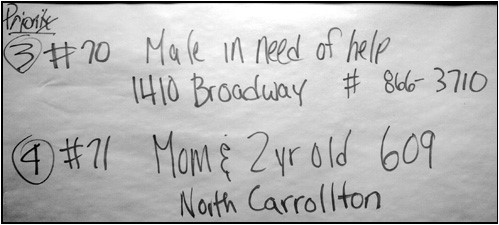 Priority
③ #70 Male in need of help
1410 Broadway # 866-3710
④ #71 Mom & 2yr old 609
North Carrollton